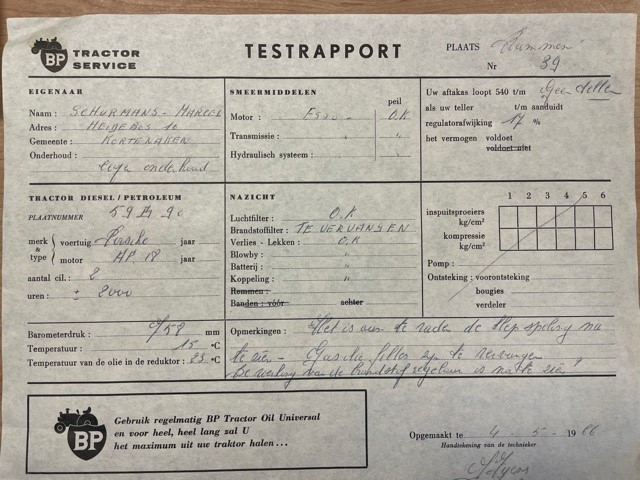 BP TRACTOR SERVICE
TESTRAPPORT
PLAATS Rummen
Nr 39
EIGENAAR
Naam : SCHURMANS - MARCEL
Adres : HEIDEBOS 10
Gemeente : KORTENAKEN
Onderhoud :
eigen onderhoud
SMEERMIDDELEN
peil
Motor : Esso - O.K
Transmissie : "
Hydraulisch systeem : "
Uw aftakas loopt 540 t/m Geen teller
als uw teller t/m aanduidt
regulatorafwijking 17 %
het vermogen voldoet
voldoet niet
TRACTOR DIESEL / PETROLEUM
PLAATNUMMER
merk & type
voertuig Porsche jaar
motor AP. 18 jaar
aantal cil. : 2
uren : ± 2000
NAZICHT
Luchtfilter : O.K
Brandstoffilter : TE VERVANGEN
Verlies - Lekken : O.K
Blowby : "
Batterij : "
Koppeling : "
Remmen :
Banden : vóór achter
1 2 3 4 5 6
inspuitsproeiers kg/cm²
kompressie kg/cm²
Pomp :
Ontsteking : voorontsteking
bougies
verdeler
Barometerdruk : mm
Temperatuur : 15 °C
Temperatuur van de olie in de reduktor : 85 °C
Opmerkingen : Het is aan te raden de klepspeling na
te zien - filter zijn te vervangen
De werking van de brandstofregelaar is na te zien
BP
Gebruik regelmatig BP Tractor Oil Universal
en voor heel, heel lang zal U
het maximum uit uw traktor halen...
Opgemaakt te 4 - 5 - 1966
Handtekening van de technieker